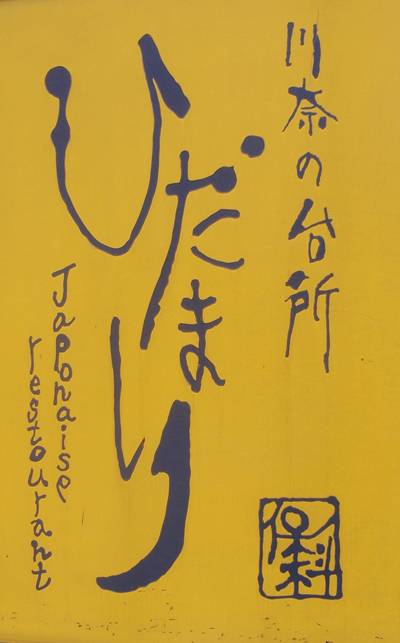 川奈の台所
ひだまり
Japonaise
restourant
保科